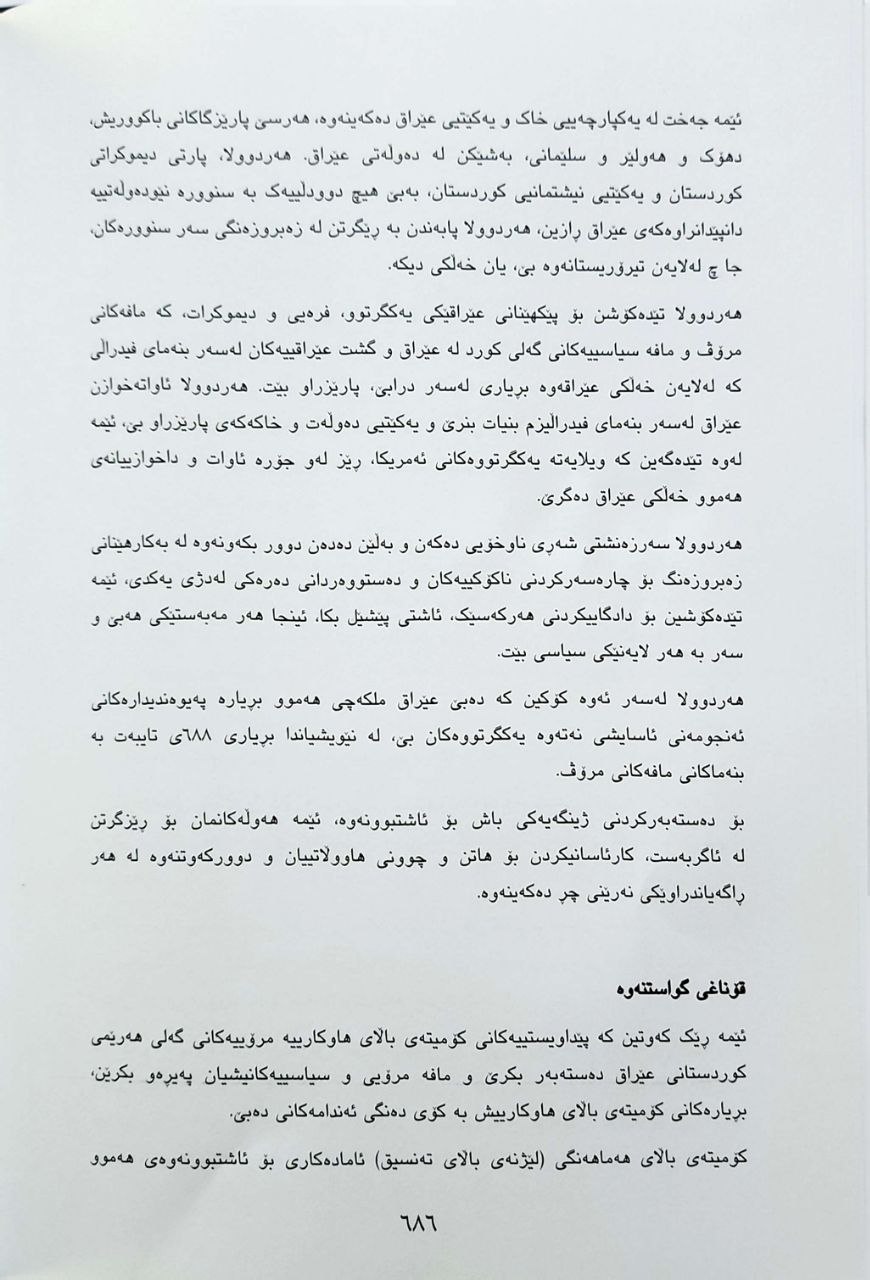 ئێمە جەخت لە یەکپارچەیی خاک و یەکێتیی عێراق دەکەینەوە، هەرسێ پارێزگاکانی باکووریش،
دهۆک و هەولێر و سلێمانی، بەشێکن لە دەوڵەتی عێراق. هەردوولا، پارتی دیموکراتی
کوردستان و یەکێتیی نیشتمانیی کوردستان، بەبێ هیچ دوودڵییەک بە سنوورە نێودەوڵەتییە
دانپێدانراوەکەی عێراق ڕازین، هەردوولا پابەندن بە ڕێگرتن لە زەبروزەنگی سەر سنوورەکان،
جا چ لەلایەن تیرۆریستانەوە بێ، یان خەڵکی دیکە.
هەردوولا تێدەکۆشن بۆ پێکهێنانی عێراقێکی یەکگرتوو، فرەیی و دیموکرات، کە مافەکانی
مرۆڤ و مافە سیاسییەکانی گەلی کورد لە عێراق و گشت عێراقییەکان لەسەر بنەمای فیدراڵی
کە لەلایەن خەڵکی عێراقەوە بڕیاری لەسەر درابێ، پارێزراو بێت. هەردوولا ئاواتەخوازن
عێراق لەسەر بنەمای فیدراڵیزم بنیات بنرێ و یەکێتیی دەوڵەت و خاکەکەی پارێزراو بێ، ئێمە
لەوە تێدەگەین کە ویلایەتە یەکگرتووەکانی ئەمریکا، ڕێز لەو جۆرە ئاوات و داخوازییانەی
هەموو خەڵکی عێراق دەگرێ.
هەردوولا سەرزەنشتی شەڕی ناوخۆیی دەکەن و بەڵێن دەدەن دوور بکەونەوە لە بەکارهێنانی
زەبروزەنگ بۆ چارەسەرکردنی ناکۆکییەکان و دەستووەردانی دەرەکی لەدژی یەکدی، ئێمە
تێدەکۆشین بۆ دادگاییکردنی هەرکەسێک، ئاشتی پێشێل بکا، ئینجا هەر مەبەستێکی هەبێ و
سەر بە هەر لایەنێکی سیاسی بێت.
هەردوولا لەسەر ئەوە کۆکین کە دەبێ عێراق ملکەچی هەموو بڕیارە پەیوەندیدارەکانی
ئەنجومەنی ئاسایشی نەتەوە یەکگرتووەکان بێ، لە نێویشیاندا بڕیاری ٦٨٨ی تایبەت بە
بنەماکانی مافەکانی مرۆڤ.
بۆ دەستەبەرکردنی ژینگەیەکی باش بۆ ئاشتبوونەوە، ئێمە هەوڵەکانمان بۆ ڕێزگرتن
لە ئاگربەست، کارئاسانیکردن بۆ هاتن و چوونی هاووڵاتییان و دوورکەوتنەوە لە هەر
ڕاگەیاندراوێکی نەرێنی چڕ دەکەینەوە.
قۆناغی گواستنەوە
ئێمە ڕێک کەوتین کە پێداویستییەکانی کۆمیتەی باڵای هاوکارییە مرۆییەکانی گەلی هەرێمی
کوردستانی عێراق دەستەبەر بکرێ و مافە مرۆیی و سیاسییەکانیشیان پەیڕەو بکرێن،
بڕیارەکانی کۆمیتەی باڵای هاوکارییش بە کۆی دەنگی ئەندامەکانی دەبێ.
کۆمیتەی باڵای هەماهەنگی (لێژنەی باڵای تەنسیق) ئامادەکاری بۆ ئاشتبوونەوەی هەموو
٦٨٦